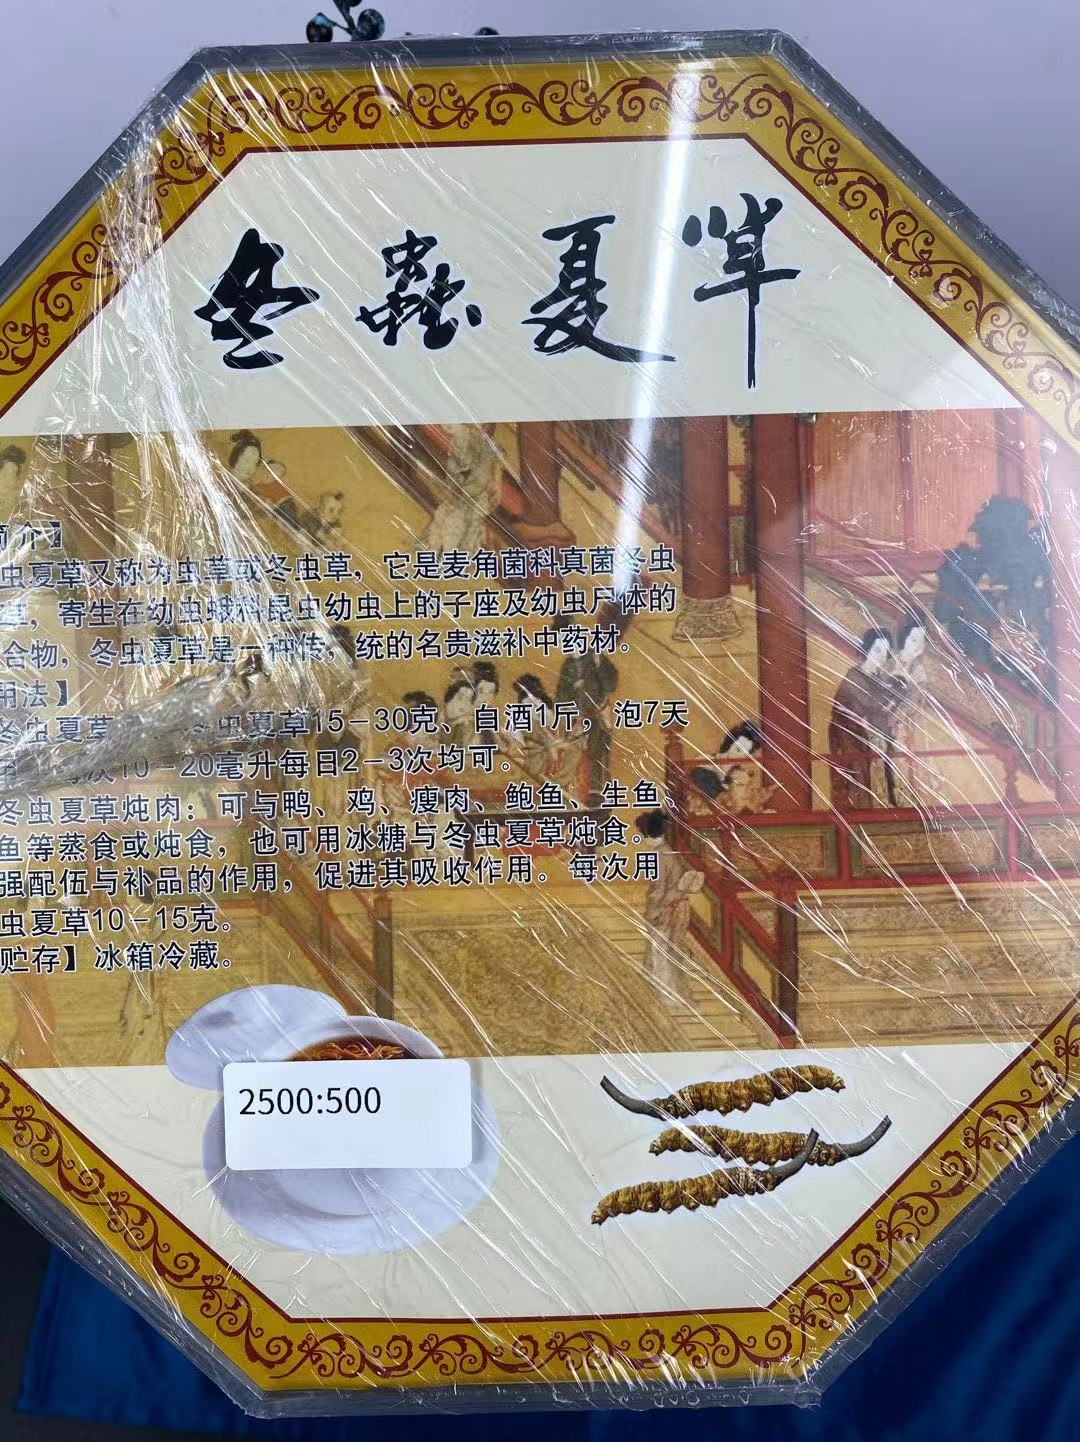 冬蟲夏草
简介】
虫夏草又称为虫草或冬虫草，它是麦角菌科真菌冬虫
寄生在幼虫蛾科昆虫幼虫上的子座及幼虫尸体的
合物，冬虫夏草是一种传，统的名贵滋补中药材。
用法】
冬虫夏草 冬虫夏草15－30克、白酒1斤，泡7天
每次10－20毫升每日2－3次均可。
冬虫夏草炖肉：可与鸭、鸡、瘦肉、鲍鱼、生鱼、
鱼等蒸食或炖食，也可用冰糖与冬虫夏草炖食。
强配伍与补品的作用，促进其吸收作用。每次用
虫夏草10－15克。
贮存】冰箱冷藏。
2500:500